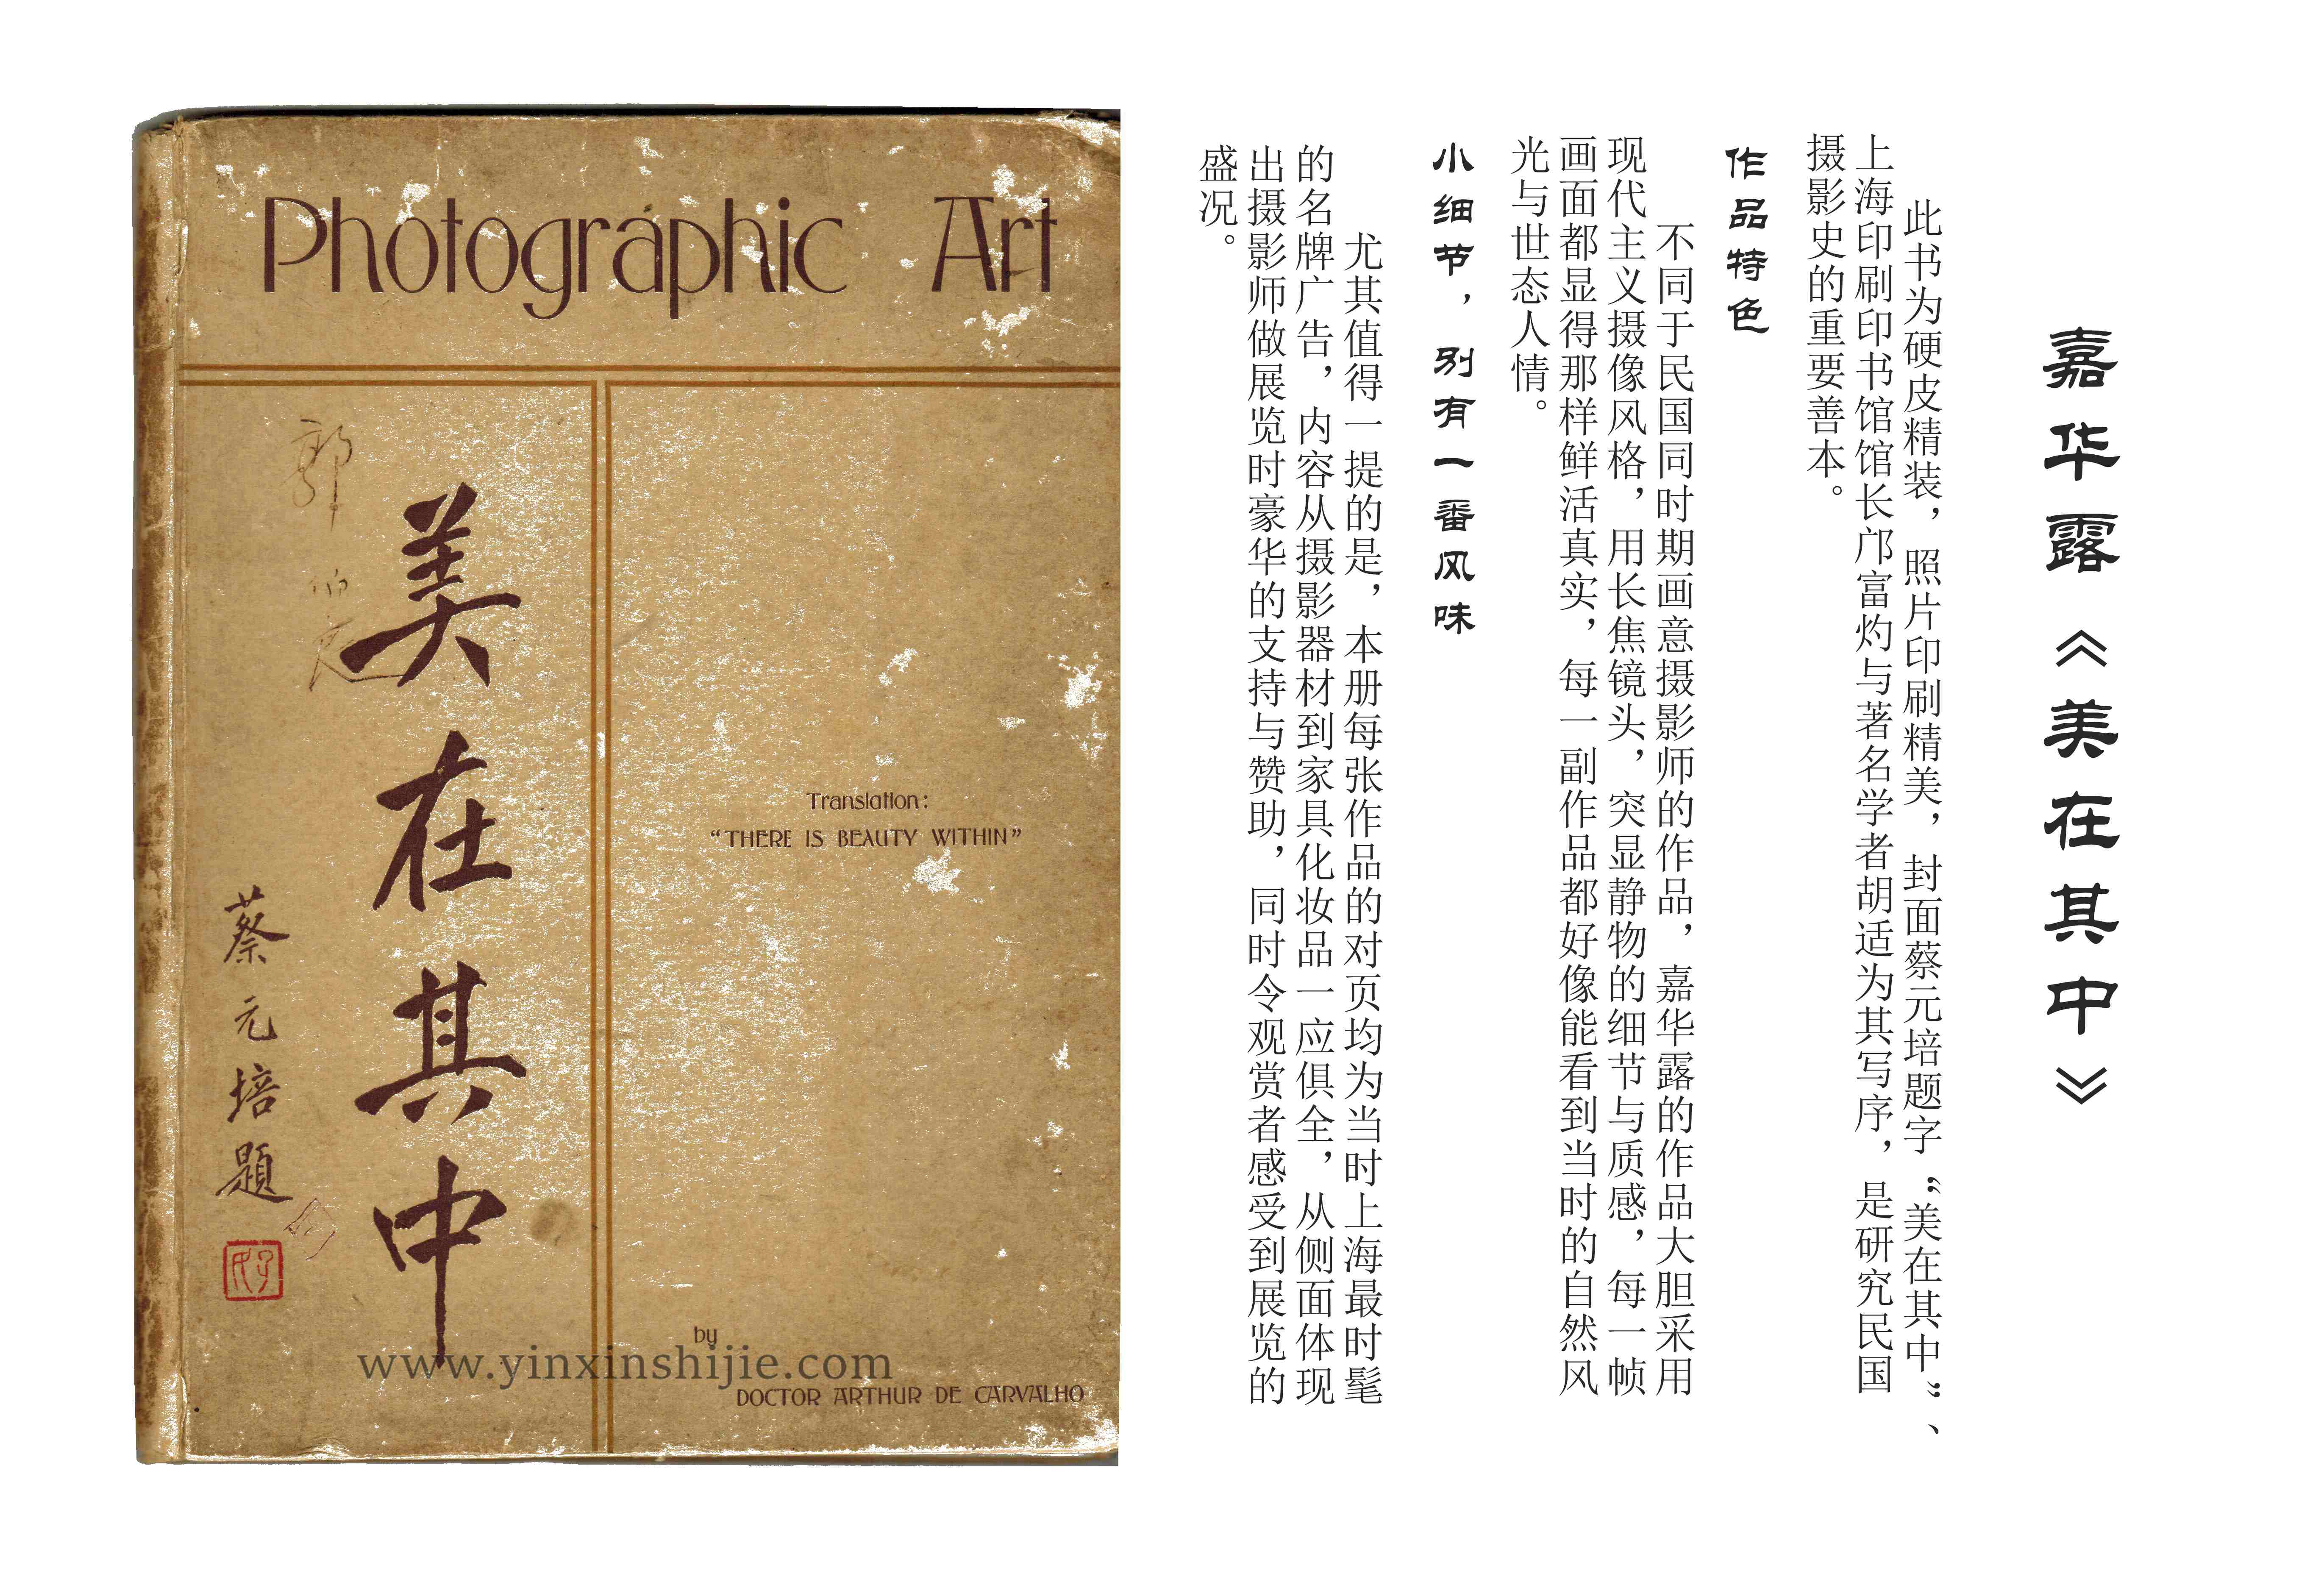 Photographic Art
美在其中
蔡元培題
Translation:
“THERE IS BEAUTY WITHIN”
by
DOCTOR ARTHUR DE CARVALHO
www.yinxinshijie.com
嘉华露《美在其中》
此书为硬皮精装，照片印刷精美，封面蔡元培题字“美在其中”、
上海印刷印书馆馆长邝富灼与著名学者胡适为其写序，是研究民国
摄影史的重要善本。
作品特色
不同于民国同时期画意摄影师的作品，嘉华露的作品大胆采用
现代主义摄像风格，用长焦镜头，突显静物的细节与质感，每一帧
画面都显得那样鲜活真实，每一副作品都好像能看到当时的自然风
光与世态人情。
小细节，别有一番风味
尤其值得一提的是，本册每张作品的对页均为当时上海最时髦
的名牌广告，内容从摄影器材到家具化妆品一应俱全，从侧面体现
出摄影师做展览时豪华的支持与赞助，同时令观赏者感受到展览的
盛况。